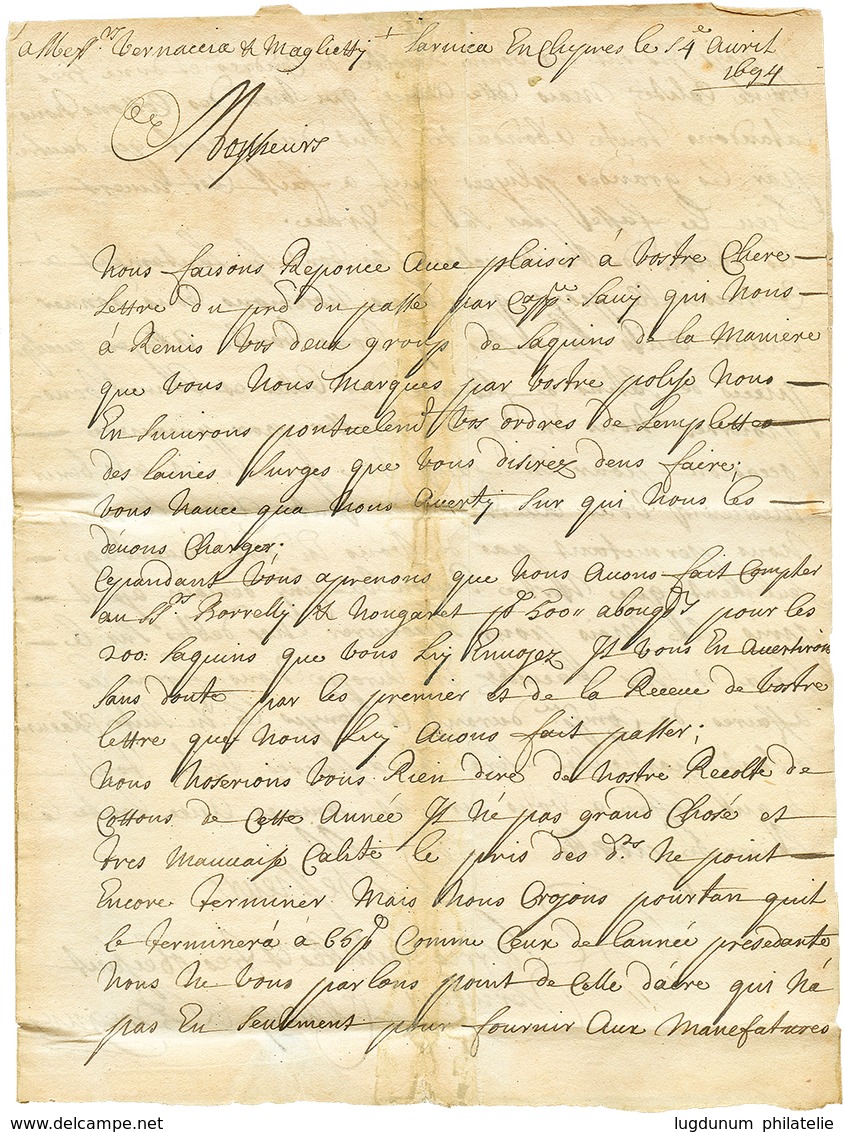 a Mess.rs Vernaccia & Magliettj + Larnica En Chypres le 14e Avrit
1694
Monsieurs
Nous faisons Reponce Avec plaisir à Vostre Chere
Lettre du prd du passé par Capp.e Sauj qui Nous
à Remis Vos deux group de Saquins de la Maniere
que Vous Nous Marques par Vostre polise Nous
En Suivrons pontuelemt Vos ordres de Lemplette
des laines Surges que Vous disirez dens faire;
Vous Navee qua Nous Averty Sur qui Nous les
devons Charger;
Cepandant Vous aprenons que Nous Avons fait Compter
au Srs Borrelly & Nougaret 500 abouqs pour les
200: Saquins que Vous Luy Envojez Jl Vous En Avertiron
Sans doute par les premier et de la Receue de Vostre
lettre que Nous Luy Avons fait passer;
Nous Noserions Vous Rien dire de Nostre Recolte de
Cottons de Cette Année Jl Né pas grand Chosé et
tres Mauvaise Calité le pris des d.rs Ne point
Encore terminer Mais Nous Crojons pourtan quil
le terminerá à 65 Comme Ceux de lannée presedante
Nous Ne Vous parlons point de Celle dácre qui Ná
pas En Seulement pour fournir Aux Manefatures
www.delcampe.net
lugdunum philatelie